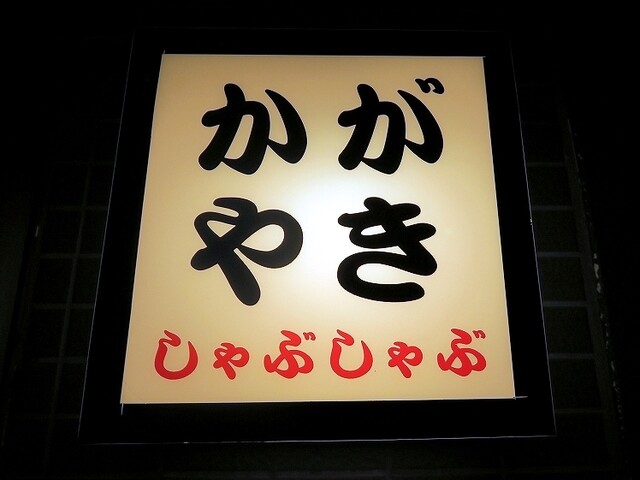 かが
やき
しゃぶしゃぶ